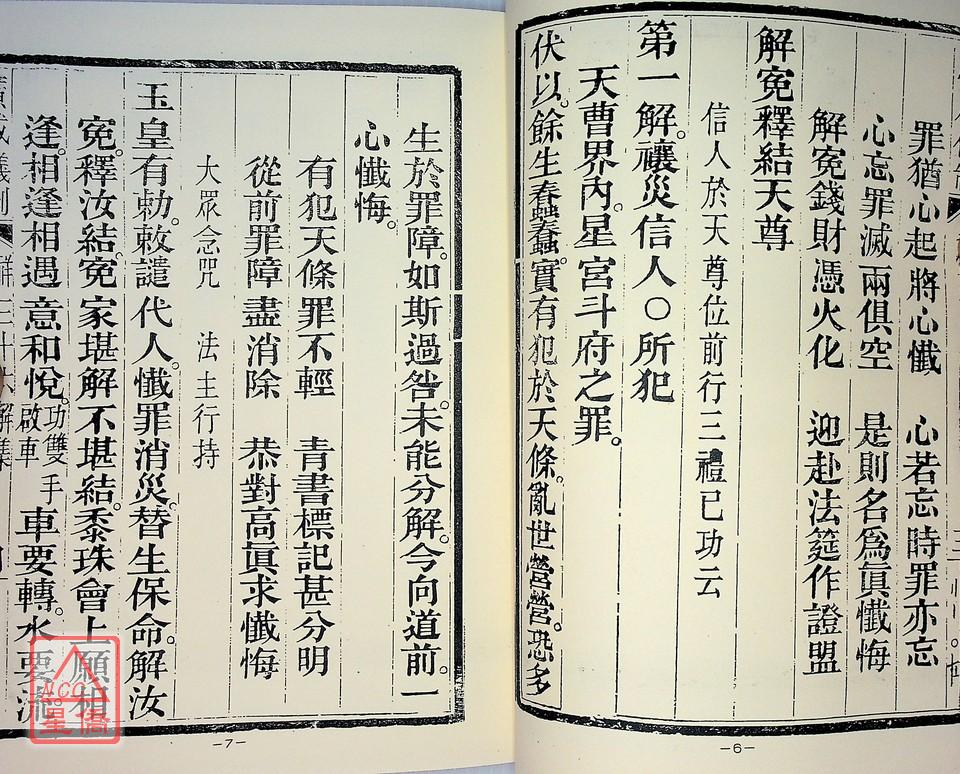 罪猶心起將心懺　心若忘時罪亦忘
心忘罪滅兩俱空　是則名為眞懺悔
解寃錢財憑火化　迎赴法筵作證盟
解寃釋結天尊
信人於天尊位前行三禮已功云
第一解。禳災信人○所犯
天曹界內。星宮斗府之罪。
伏以。餘生蠢蠢。實有犯於天條。亂世營營。恐多
－6－
生於罪障。如斯過咎。未能分解。今向道前。一
心懺悔。
有犯天條罪不輕　青書標記甚分明
從前罪障盡消除　恭對高眞求懺悔
大眾念咒　法主行持
玉皇有勅。敕譴代人。懺罪消災。替生保命。解汝
寃。釋汝結。寃家堪解不堪結。黍珠會上願相
逢。相逢相遇意和悅。功雙手啟車　車要轉。水要流
－7－
NCC
星僑